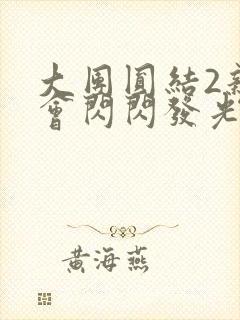 大團圓結2
會閃閃發光
黃海燕